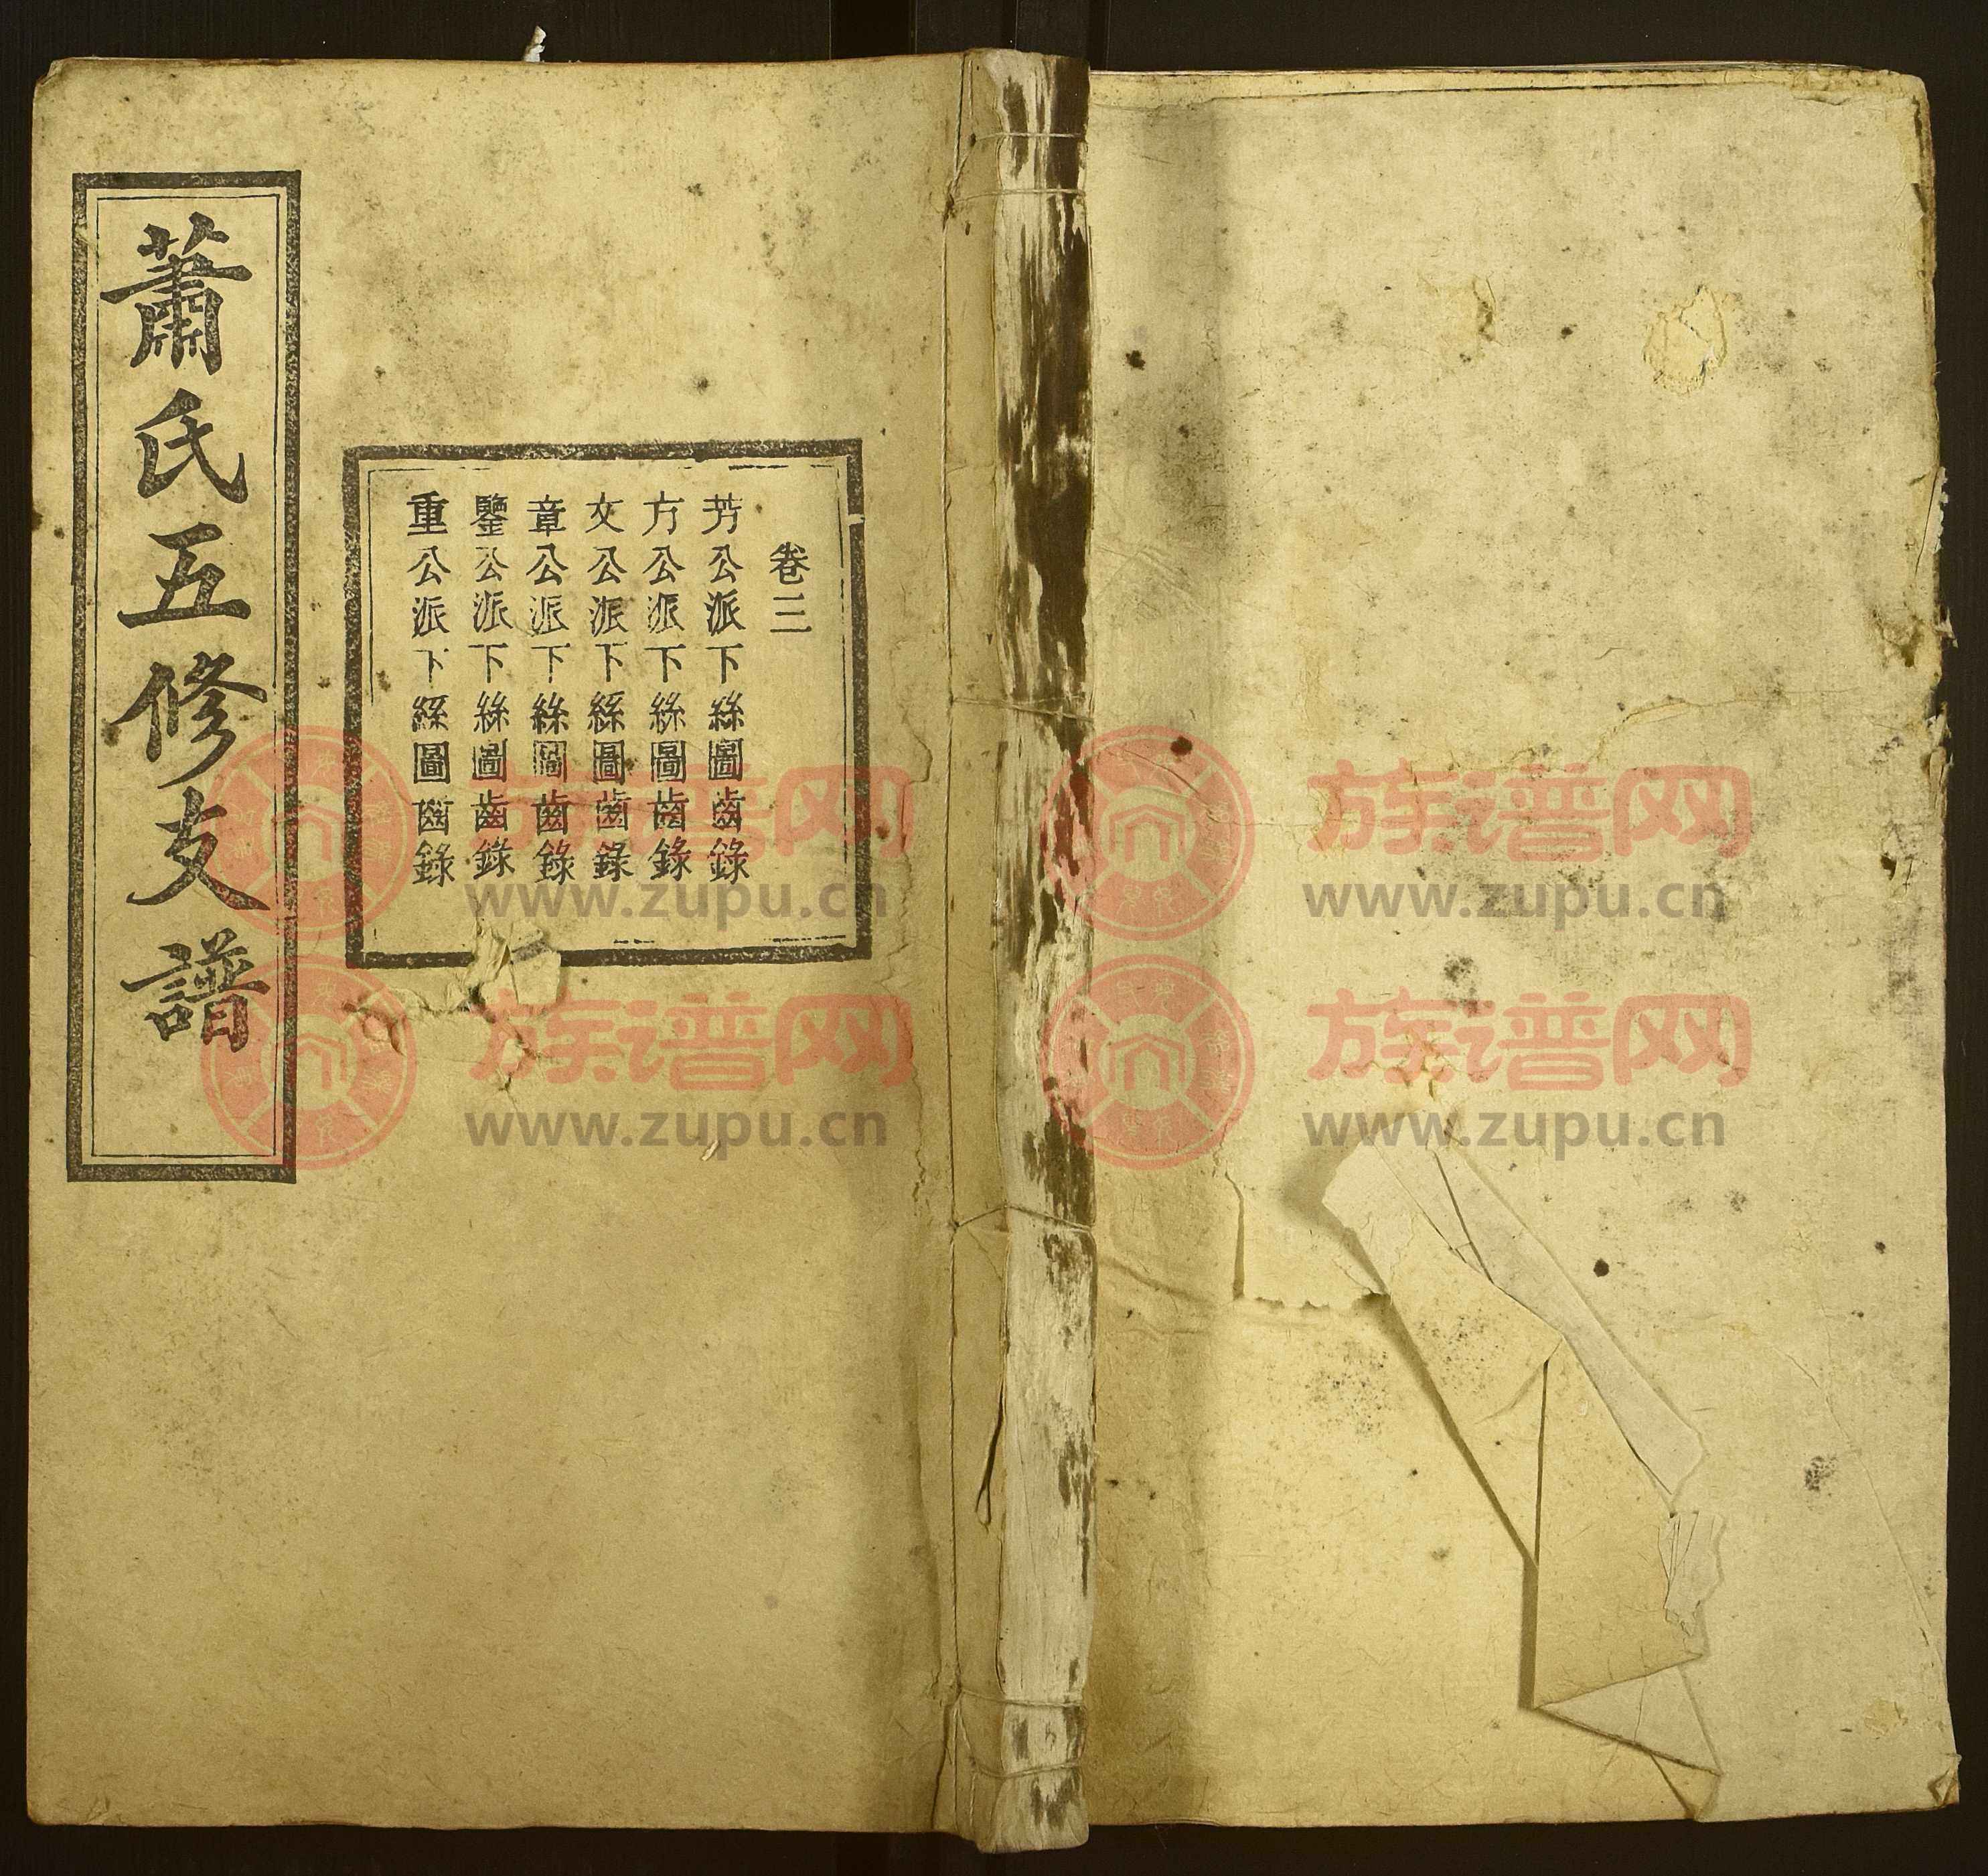 蕭氏五修支譜
卷三
芳公派下絲圖齒錄
方公派下絲圖齒錄
文公派下絲圖齒錄
章公派下絲圖齒錄
鑒公派下絲圖齒錄
重公派下絲圖齒錄
族谱网
www.zupu.cn
族谱网
www.zupu.cn
族谱网
www.zupu.cn
族谱网
www.zupu.cn